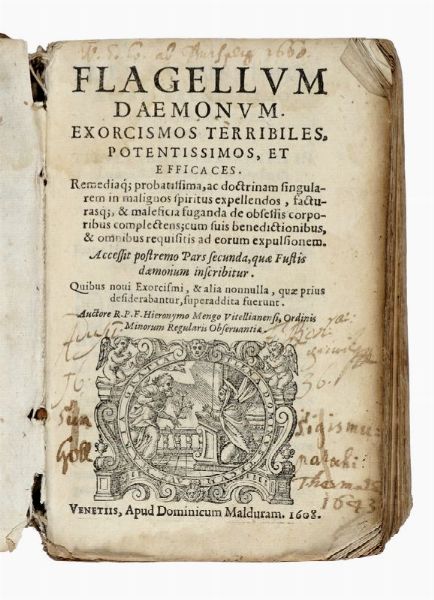 1660.
FLAGELLVM
DAEMONVM.
EXORCISMOS TERRIBILES,
POTENTISSIMOS, ET
EFFICACES.
Remediaq; probatissima, ac doctrinam singula-
rem in malignos spiritus expellendos, factu-
rasq;, & maleficia fuganda de obsessis corpo-
ribus complectens; cum suis benedictionibus,
& omnibus requisitis ad eorum expulsionem.
Accessit postremo Pars secunda, quæ Fustis
dæmonum inscribitur.
Quibus noui Exorcismi, & alia nonnulla, quæ prius
desiderabantur, superaddita fuerunt.
Auctore R.P.F. Hieronymo Mengo Vitellianensi, Ordinis
Minorum Regularis Obseruantiæ.
Sigismu
1643
VENETIIS, Apud Dominicum Malduram. 1608.